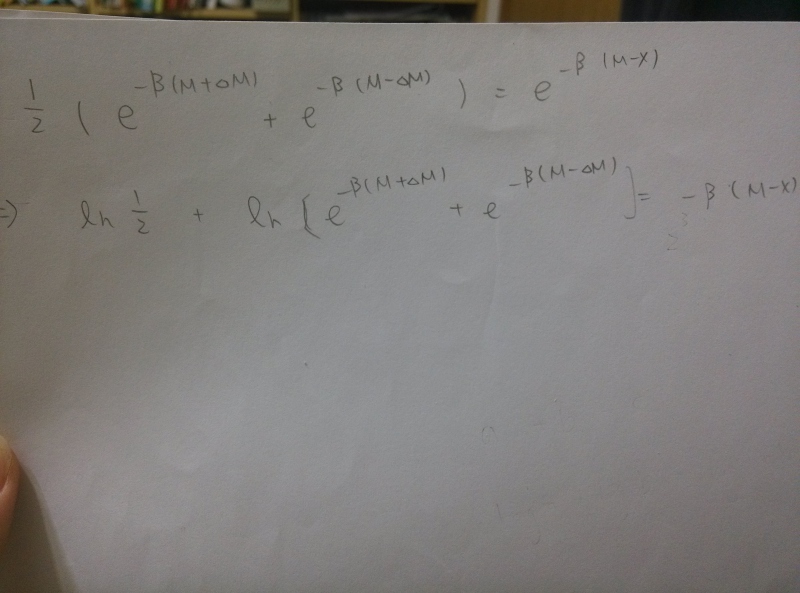 1/2 ( e^{-β(M+△M)} + e^{-β(M-△M)} ) = e^{-β(M-X)}
=) ln 1/2 + ln [ e^{-β(M+△M)} + e^{-β(M-△M)} ] = -β(M-X)